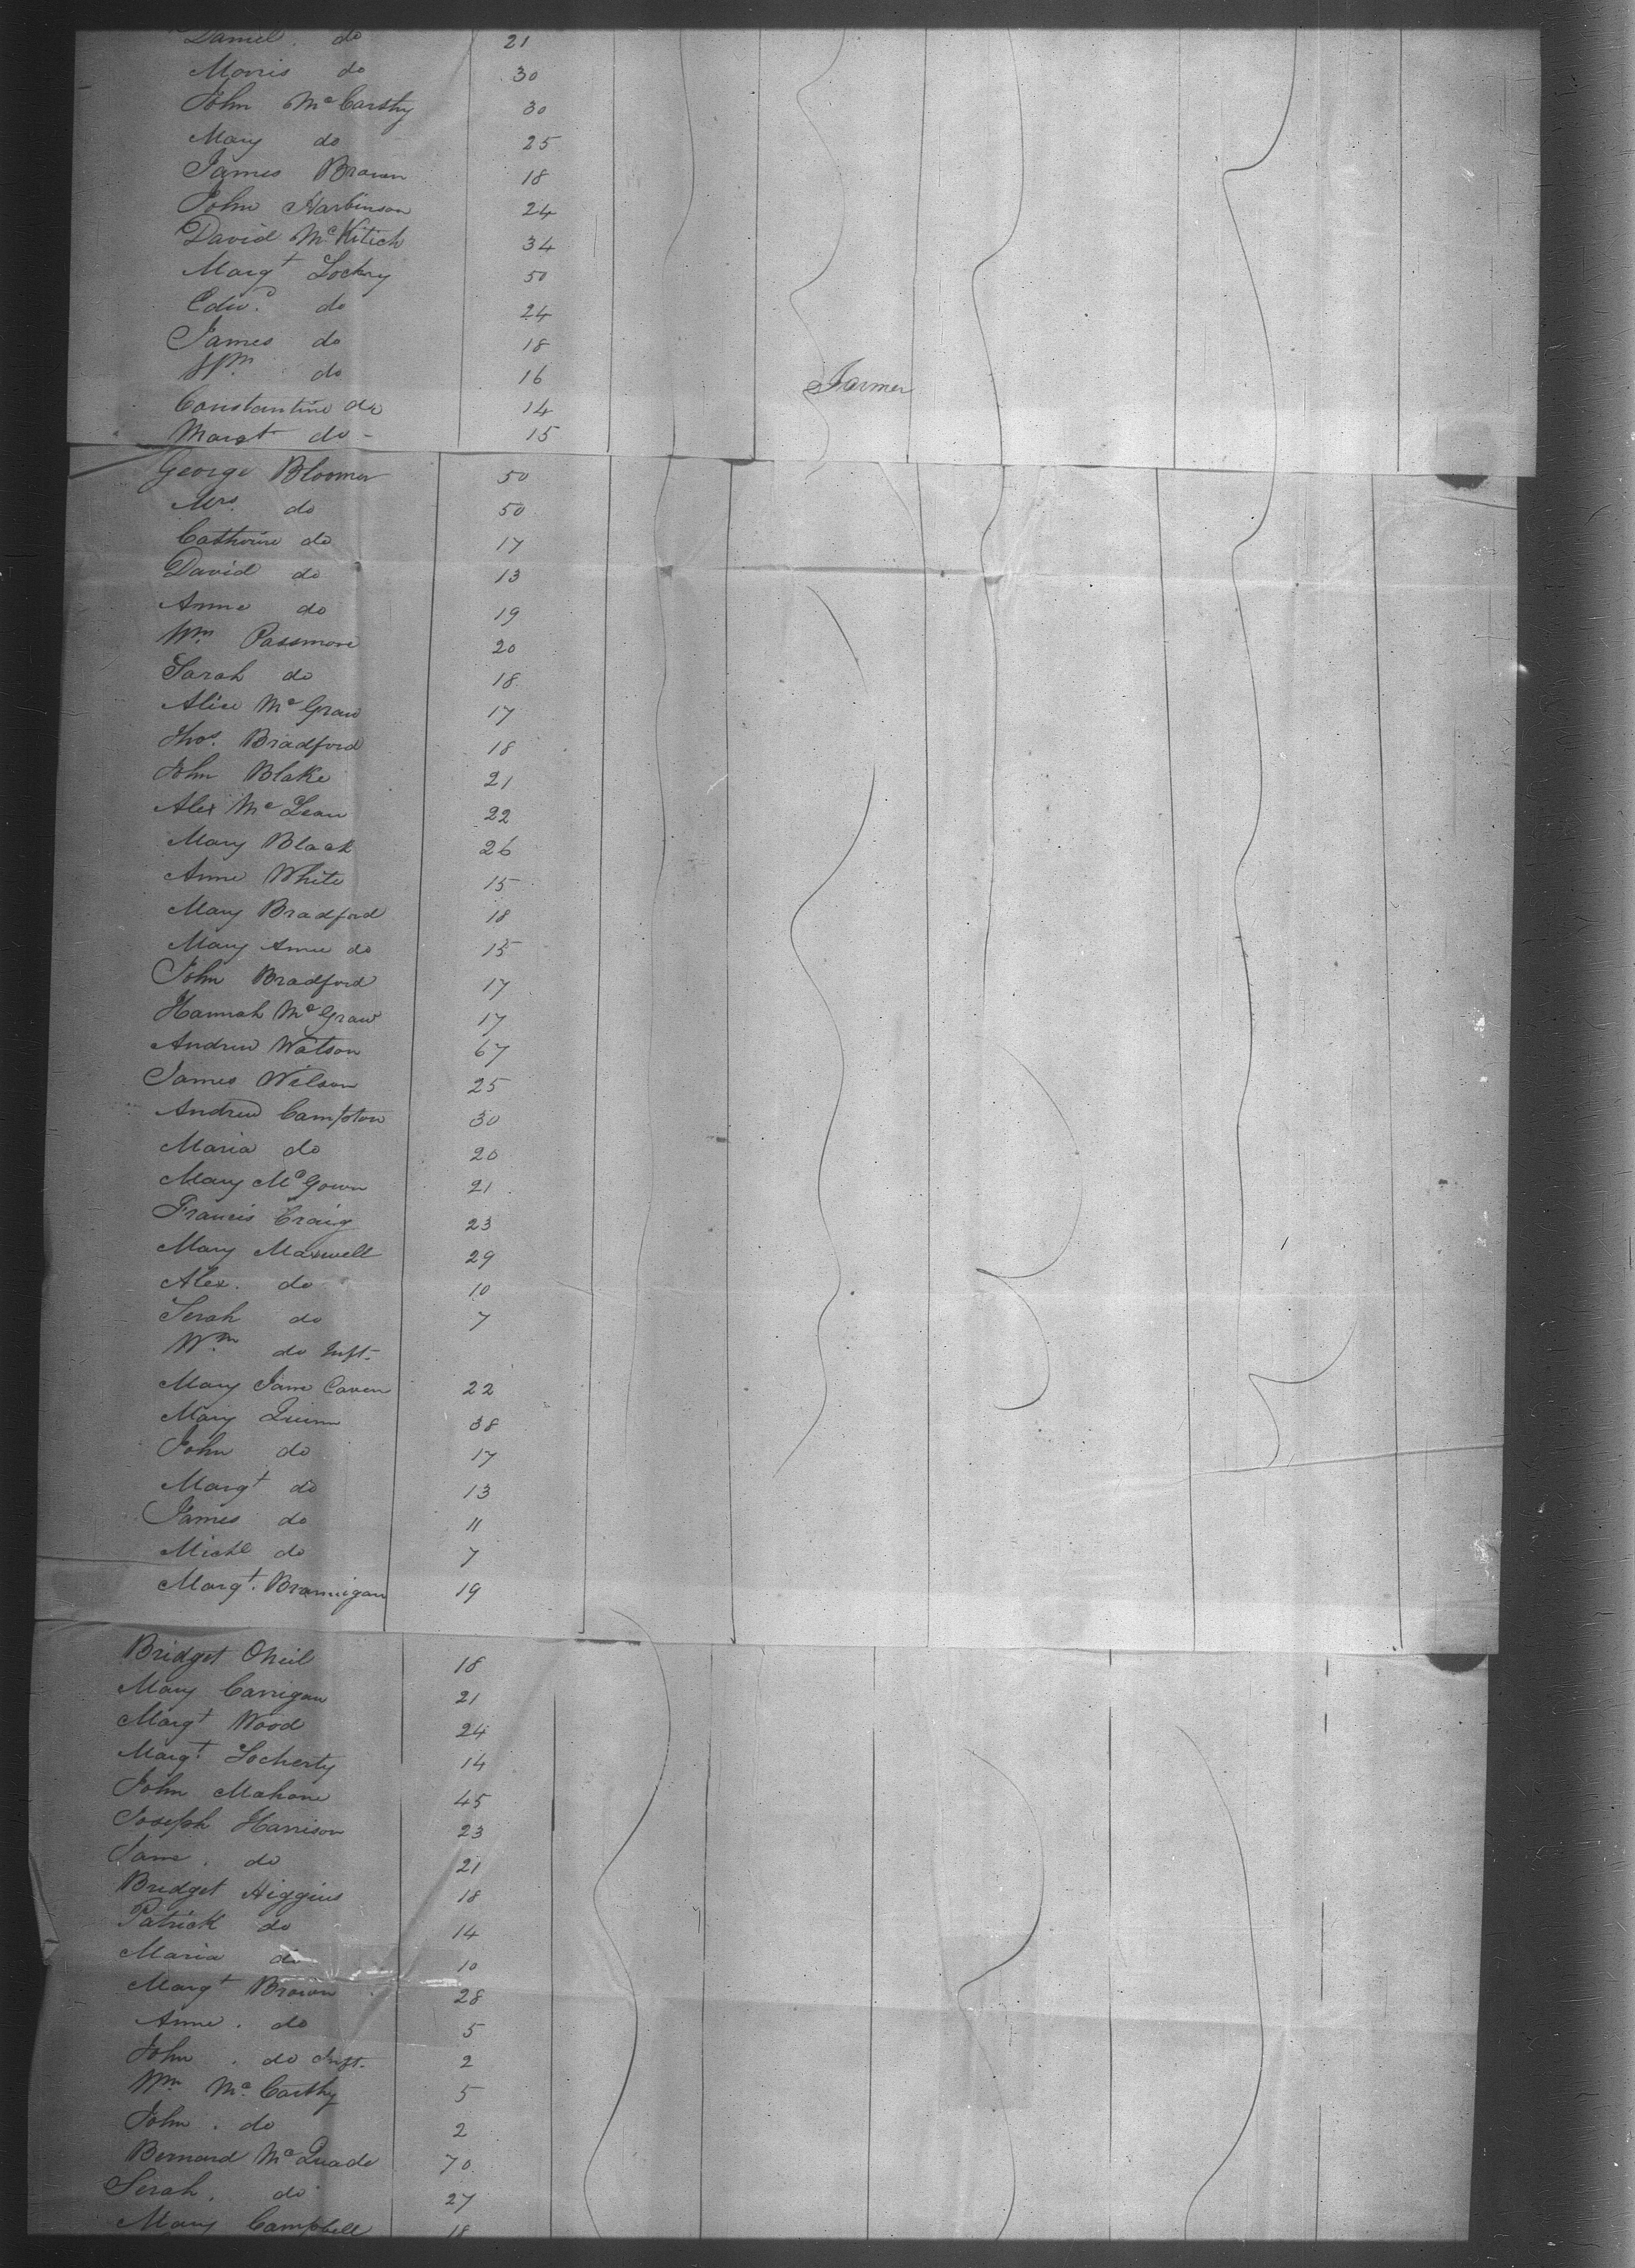 Daniel. do 21
Morris do 30
John McCarthy 30
Mary do 25
James Brown 18
John Harbinson 24
David McKitich 34
Margt Lockry 50
Edwd. do 24
James do 18
Wm. do 16
Farmer
Constantine do 14
Margt do - 15
George Bloomer 50
Mrs. do 50
Catherine do 17
David do 13
Anne do 19
Wm. Passmore 20
Sarah do 18
Alice McGraw 17
Thos. Bradford 18
John Blake 21
Alex McLean 22
Mary Black 26
Anne White 15
Mary Bradford 18
Mary Anne do 15
John Bradford 17
Hannah McGraw 17
Andrew Watson 67
James Wilson 25
Andrew Campston 30
Maria do 20
Mary McGown 21
Francis Craig 23
Mary Maxwell 29
Alex. do 10
Serah do 7
Wm do Inft.
Mary Jane Caven 22
Mary Quinn 38
John do 17
Margt do 13
James do 11
Michl do 7
Margt. Brannigan 19
Bridget Oneil 18
Mary Carrigan 21
Margt Wood 24
Margt. Locherty 14
John Mahone 45
Joseph Harrison 23
Jane. do 21
Bridget Higgins 18
Patrick do 14
Maria do 10
Margt Brown 28
Anne. do 5
John. do Inft. 2
Wm Mc.Carthy 5
John. do 2
Bernard McQuade 70
Serah. do 27
Mary Campbell 18